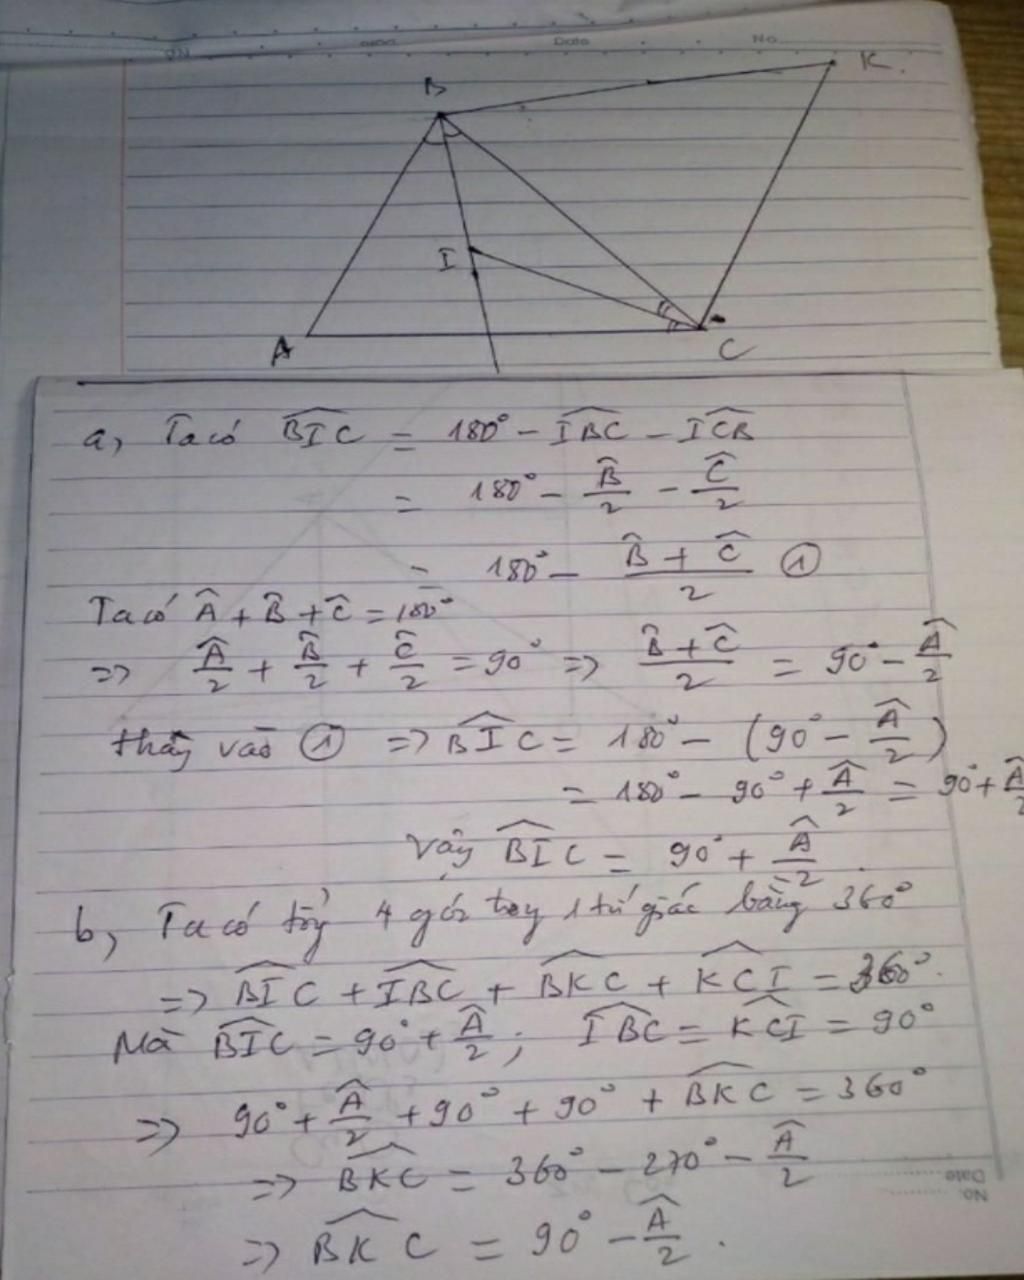 Date No.
B
K.
I
A
C
a, Ta có \widehat{BIC} = 180° - \widehat{IBC} - \widehat{ICB}
= 180° - \frac{\widehat{B}}{2} - \frac{\widehat{C}}{2}
= 180° - \frac{\widehat{B} + \widehat{C}}{2} ①
Ta có \widehat{A} + \widehat{B} + \widehat{C} = 180°
=> \frac{\widehat{A}}{2} + \frac{\widehat{B}}{2} + \frac{\widehat{C}}{2} = 90° => \frac{\widehat{B} + \widehat{C}}{2} = 90° - \frac{\widehat{A}}{2}
thay vào ① => \widehat{BIC} = 180° - (90° - \frac{\widehat{A}}{2})
= 180° - 90° + \frac{\widehat{A}}{2} = 90° + \frac{\widehat{A}}{2}
Vậy \widehat{BIC} = 90° + \frac{\widehat{A}}{2}.
b, Ta có 4 góc 1 tứ giác bằng 360°
=> \widehat{BIC} + \widehat{IBC} + \widehat{BKC} + \widehat{KCI} = 360°.
Mà \widehat{BIC} = 90° + \frac{\widehat{A}}{2}; \widehat{IBC} = \widehat{KCI} = 90°
=> 90° + \frac{\widehat{A}}{2} + 90° + 90° + \widehat{BKC} = 360°
=> \widehat{BKC} = 360° - 270° - \frac{\widehat{A}}{2}
No. Date
=> \widehat{BKC} = 90° - \frac{\widehat{A}}{2}.